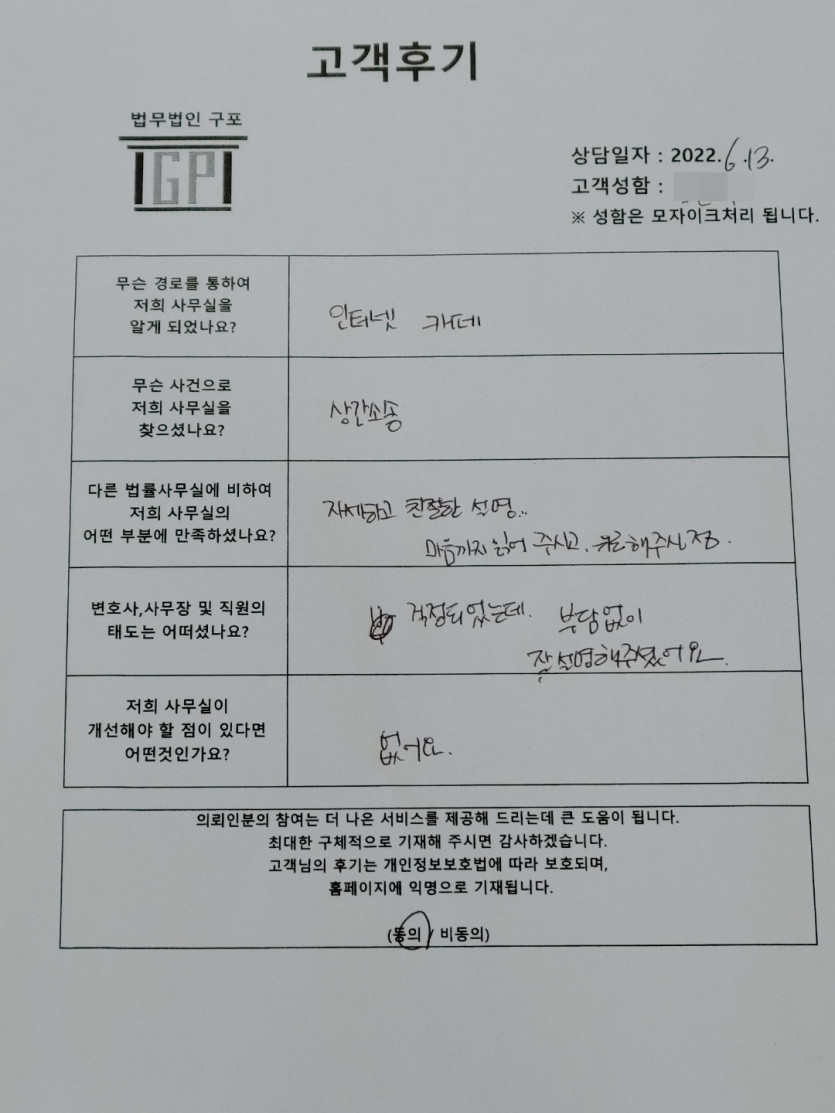 고객후기
법무법인 구포
GP
상담일자 : 2022. 6. 13.
고객성함 :
※ 성함은 모자이크처리 됩니다.
무슨 경로를 통하여
저희 사무실을
알게 되었나요?
인터넷 카페
무슨 사건으로
저희 사무실을
찾으셨나요?
상간소송
다른 법률사무실에 비하여
저희 사무실의
어떤 부분에 만족하셨나요?
자세하고 친절한 설명..
마음까지 읽어 주시고, 위로해주신 점.
변호사,사무장 및 직원의
태도는 어떠셨나요?
걱정되었는데. 부담없이
잘 설명해주셨어요.
저희 사무실이
개선해야 할 점이 있다면
어떤것인가요?
없어요.
의뢰인분의 참여는 더 나은 서비스를 제공해 드리는데 큰 도움이 됩니다.
최대한 구체적으로 기재해 주시면 감사하겠습니다.
고객님의 후기는 개인정보보호법에 따라 보호되며,
홈페이지에 익명으로 기재됩니다.
(동의 / 비동의)